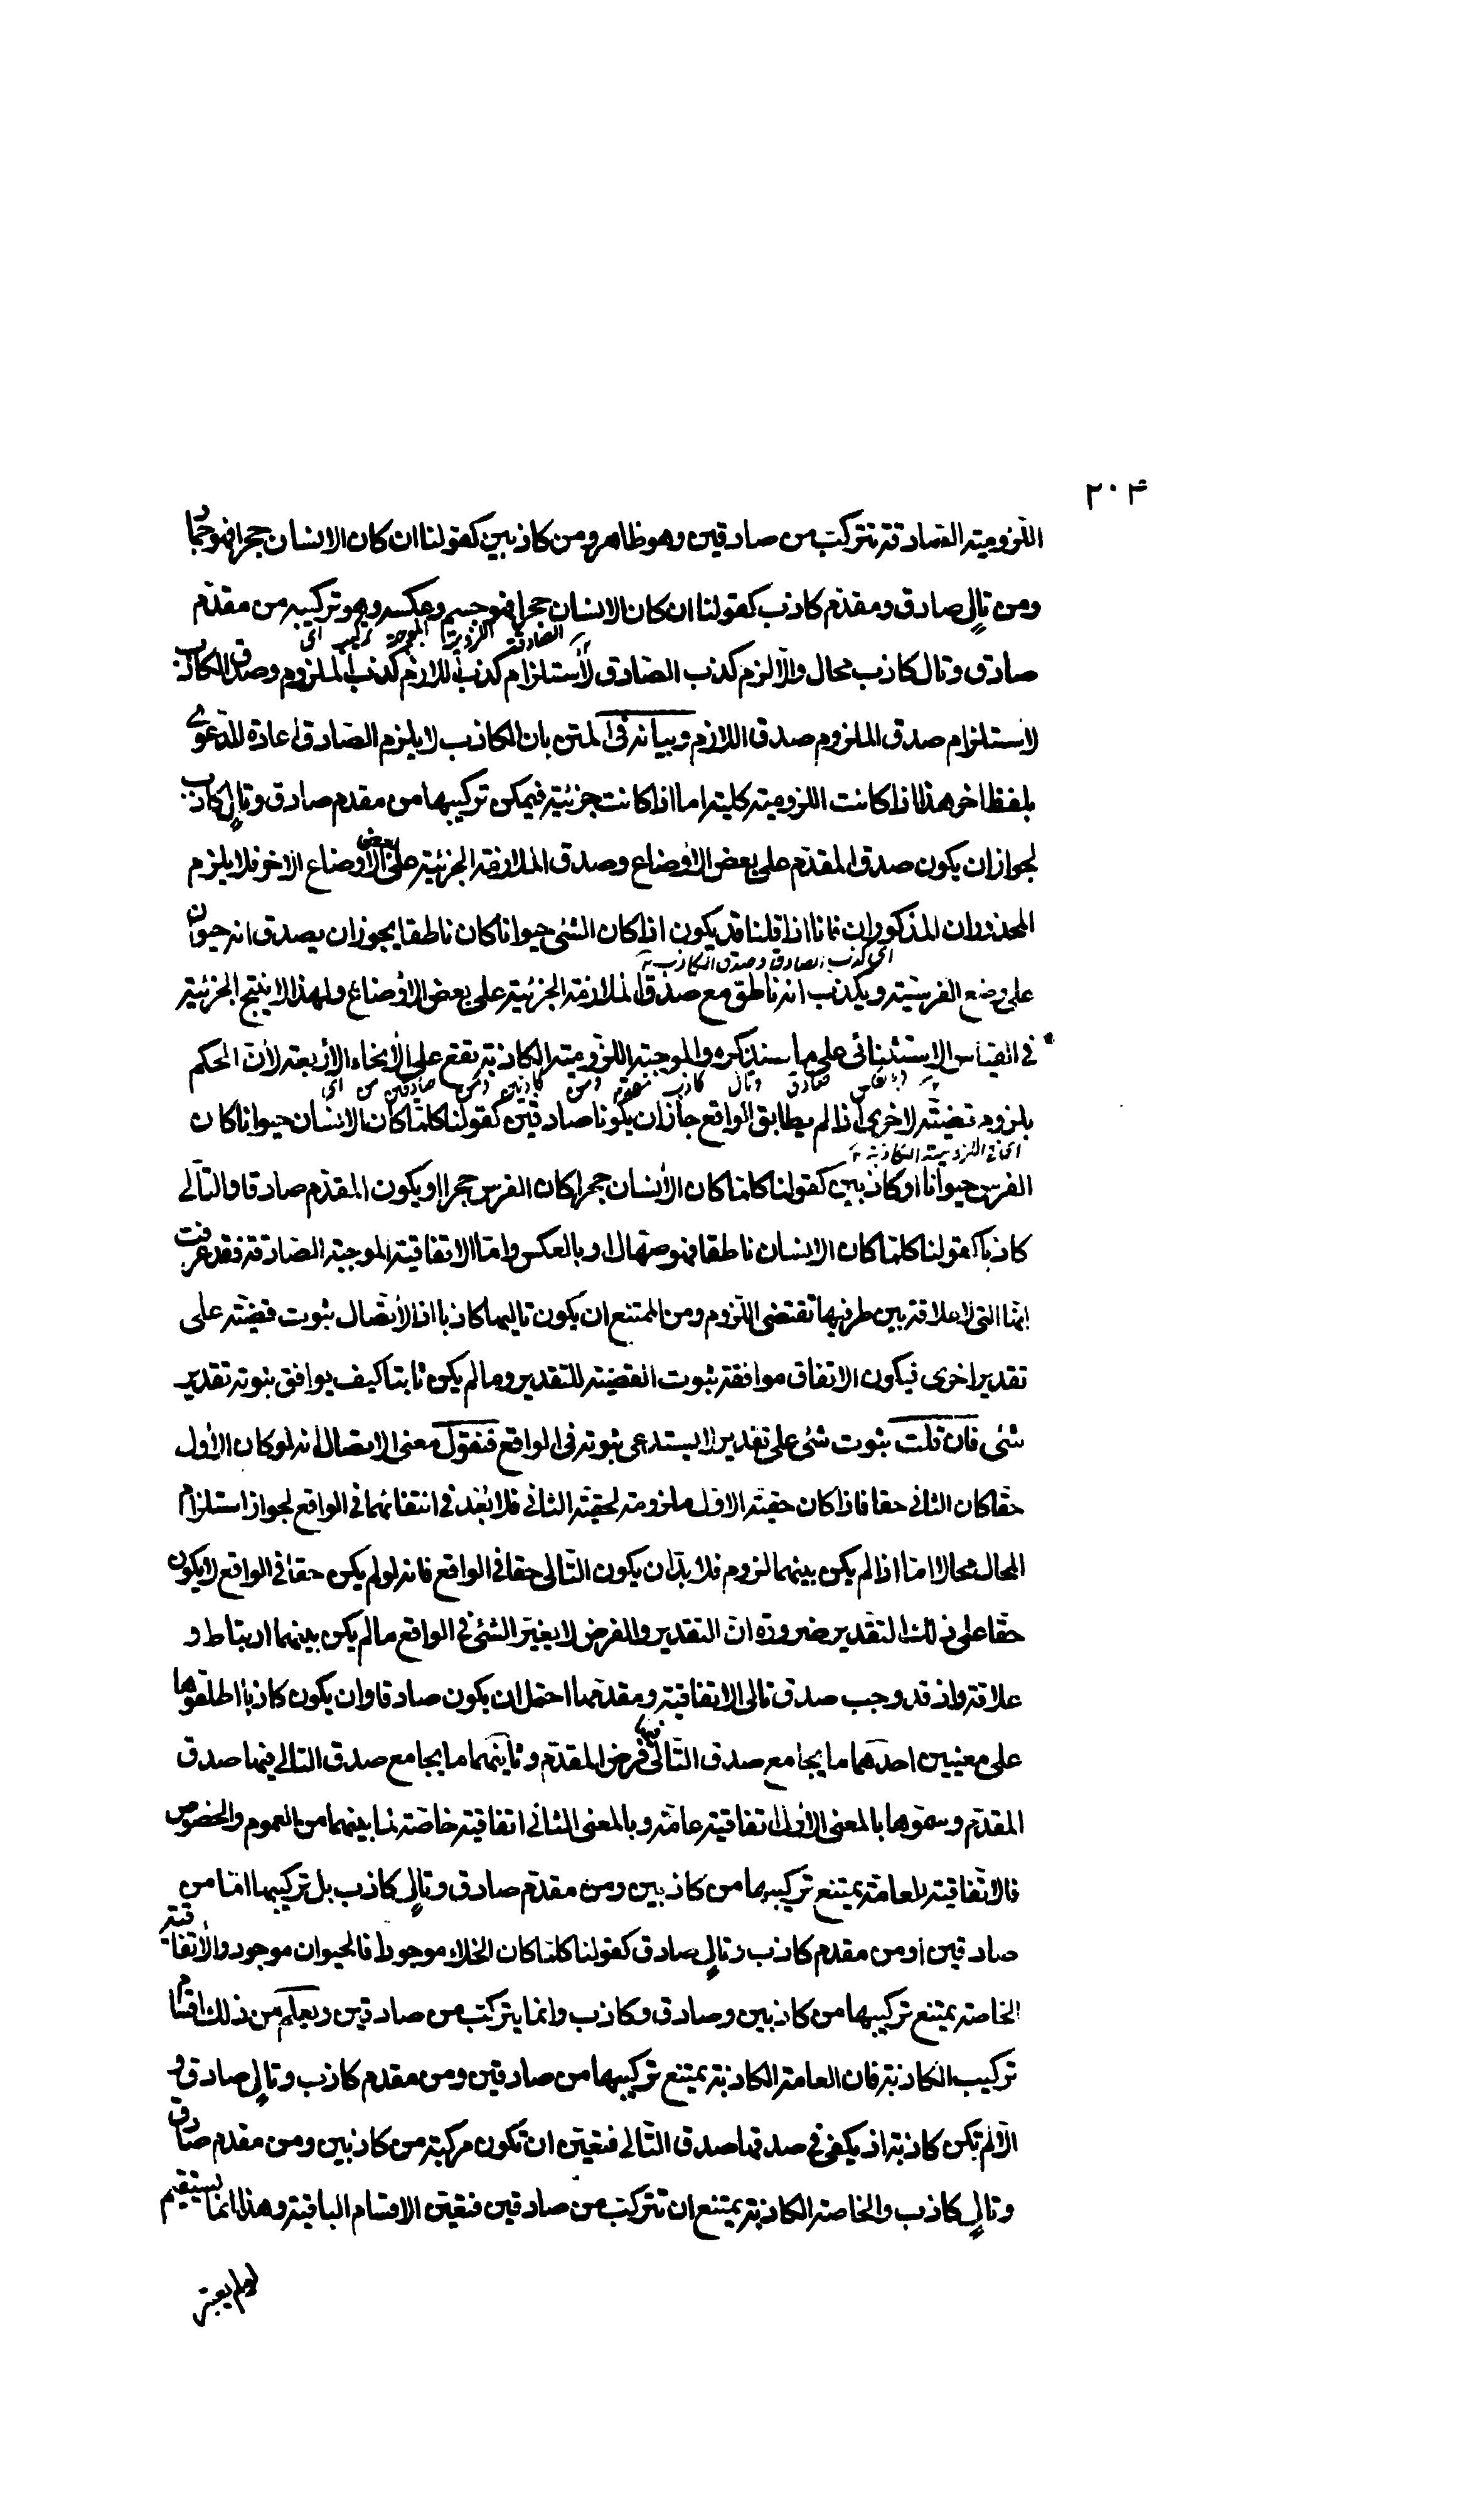 ٢٠۴
اللزومية الصادقة تتركب من صادقين وهو ظاهر ومن كاذبين كقولنا ان كان الانسان حجرا فهو جماد
ومن تالٍ صادق ومقدّم كاذب كقولنا ان كان الانسان حجرا فهو جسم وعكسه وهو تركيبه من مقدّم
اى تركيب الموجبة اللزومية الصادقة
صادق وتال كاذب محال والّا لزم كذب الصّادق لأستلزام كذب اللازم كذب الملزوم وصدق الكاذب
لاستلزام صدق الملزوم صدق اللازم وبيانه فى المتن بان الكاذب لا يلزم الصّادق اعادة للدّعوى
بلفظ اخر هذا اذا كانت اللزومية كلية اما اذا كانت جزئية فيمكن تركيبها من مقدم صادق وتالٍ كاذب
لجواز ان يكون صدق المقدّم على بعض الأوضاع وصدق الملازمة الجزئية على بعض الأوضاع الاخر فلا يلزم
المحذوران المذكوران فانا اذا قلنا قد يكون اذا كان الشئ حيوانا كان ناطقا يجوز ان يصدق انه حيوان
اى كذب الصادق وصدق الكاذب
على وضع الفرسية ويكذب انه ناطق مع صدق الملازمة الجزئية على بعض الأوضاع ولهذا لا ينتج الجزئية
فى القياس الاستثنائى على ما سنذكره والموجبة اللزومية الكاذبة تقع على الأنحاء الأربعة لأنّ الحكم
اى من صادقين ومن كاذبين ومن مقدم كاذب وتال صادق وبالعكس
بلزوم قضيّة لاخرى اذا لم يطابق الواقع جاز ان يكونا صادقين كقولنا كلّما كان الانسان حيوانا كان
اى فى اللزومية الكاذبة
الفرس حيوانا او كاذبين كقولنا كلما كان الأنسان حجرا كان الفرس حجرا او يكون المقدّم صادقا والتّالى
كاذبا كقولنا كلّما كان الانسان ناطقا فهو صهّال او بالعكس وامّا الاتفاقية الموجبة الصّادقة فقد عرفت
انّها التى لا علاقة بين طرفيها تقتضى اللزوم ومن الممتنع ان يكون تاليها كاذبا اذ الأتّصال ثبوت قضيّة على
تقدير اخرى فيكون الاتفاق موافقة ثبوت القضيّة للتقدير وما لم يكن ثابتا كيف يوافق ثبوته تقدير
شئ فان قلت ثبوت شئ على تقدير لا يستدعى ثبوته فى الواقع فنقول معنى الاتصال انه لو كان الأول
حقّا كان الثانى حقا فاذا كان حقيّة الاول ملزومة لحقيّة الثانى فلا بُعد فى انتفائهما فى الواقع لجواز استلزام
المحال محالا امّا اذا لم يكن بينهما لزوم فلا بدّ ان يكون التّالى حقا فى الواقع فانه لو لم يكن حقا فى الواقع لا يكون
حقّا على ذلك التقدير ضرورة انّ التقدير والفرض لا يغيّر الشئ فى الواقع ما لم يكن بينهما ارتباط و
علاقة واذ قد وجب صدق تالى الاتفاقية ومقدّمها احتمل ان يكون صادقا وان يكون كاذبا اطلقوها
على معنيين احدهما ما يجامع صدق التّالى فيها فرض المقدّم وثانيهما ما يجامع صدق التالى فيها صدق
المقدّم وسمّوها بالمعنى الأول اتفاقية عامّة وبالمعنى الثانى اتفاقية خاصّة لما بينهما من العموم والخصوص
فالاتّفاقية العامّة يمتنع تركيبها من كاذبين ومن مقدّم صادق وتالٍ كاذب بل تركيبها امّا من
صادقين او من مقدم كاذب وتالٍ صادق كقولنا كلما كان الخلاء موجودا فالحيوان موجود والأتفاقية
الخاصة يمتنع تركيبها من كاذبين وصادق وكاذب وانما يتركب من صادقين ويعلم من ذلك اقسام
تركيب الكاذبة فان العامة الكاذبة يمتنع تركيبها من صادقين ومن مقدم كاذب وتالٍ صادق و
الّا لم تكن كاذبة اذ يكفى فى صدقها صدق التّالى فتعيّن ان تكون مركبة من كاذبين ومن مقدم صادق
وتالٍ كاذب والخاصة الكاذبة يمتنع ان تتركب من صادقين فتعيّن الاقسام الباقية وهذا انما يستقيم
لو لم يعتبر